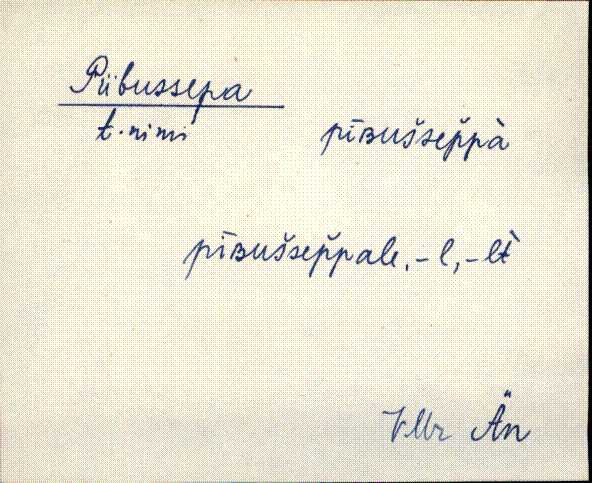 Piibussepa
t. nimi pīʙušsep̆pà
pīʙušsep̆pale, -l, -lt̀
VMr Än